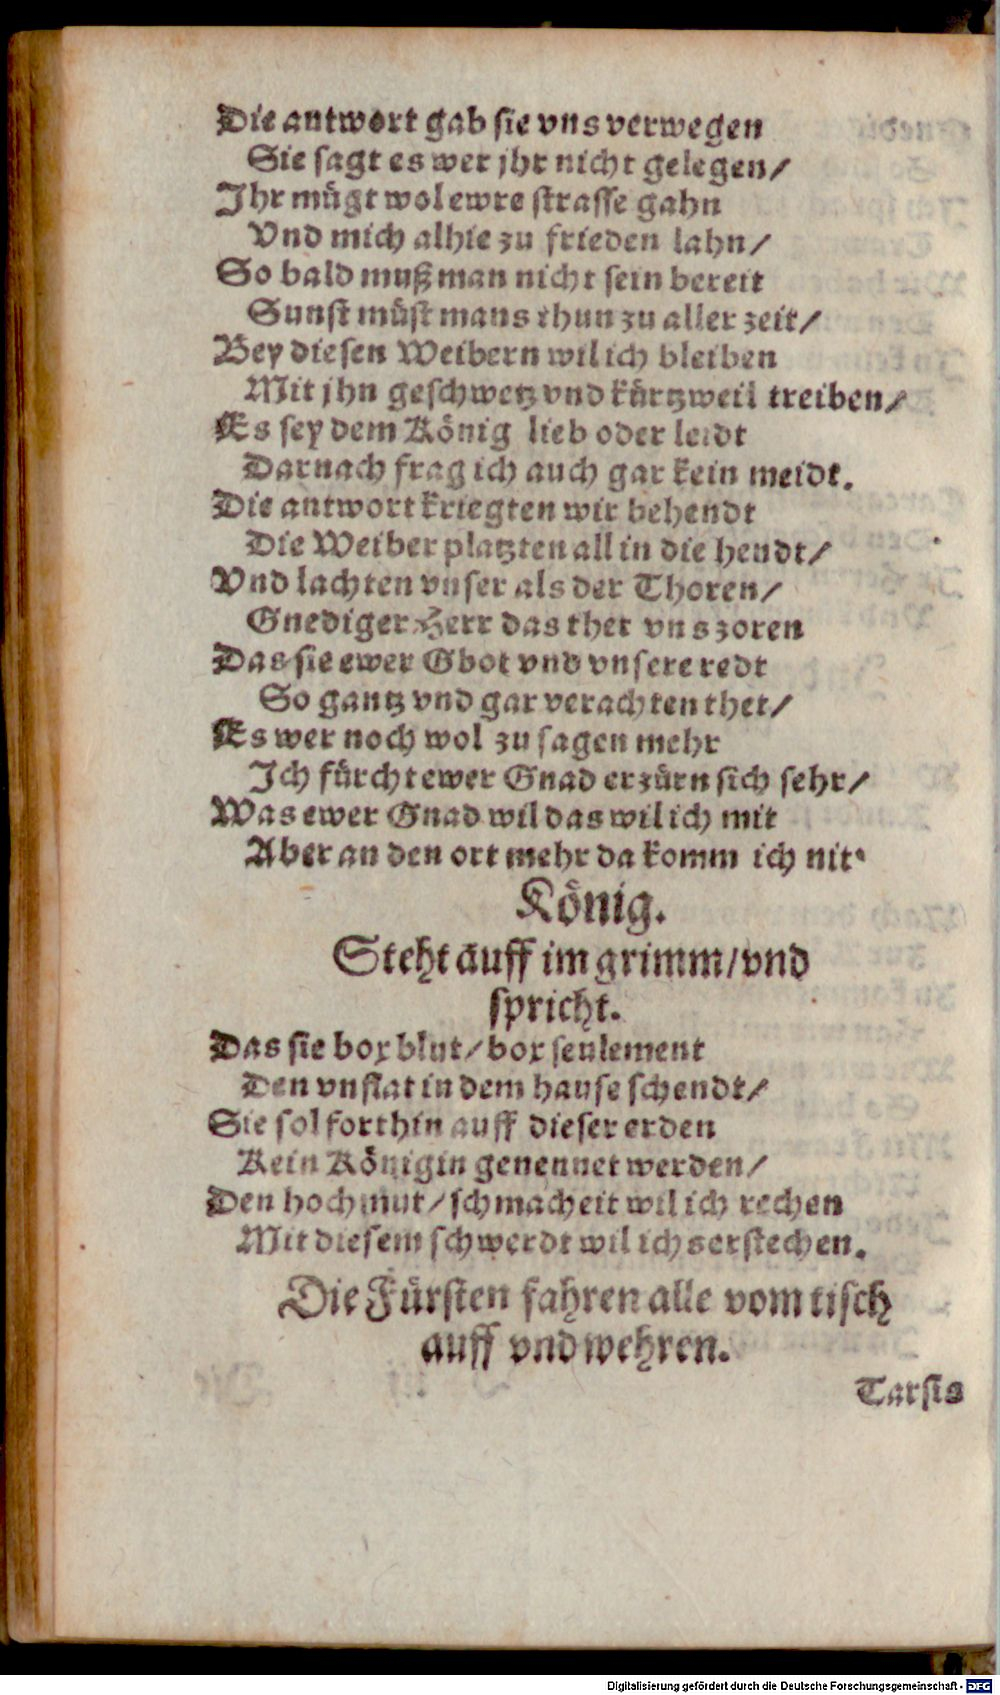 Die antwort gab sie vns verwegen
Sie sagt es wer jhr nicht gelegen/
Jhr mügt wol ewre strasse gahn
Vnd mich alhie zu frieden lahn/
So bald muß man nicht sein bereit
Sunst müst mans thun zu aller zeit/
Bey diesen Weibern wil ich bleiben
Mit jhn geschwetz vnd kürtzweil treiben/
Es sey dem König lieb oder leidt
Darnach frag ich auch gar kein meidt.
Die antwort kriegten wir behendt
Die Weiber platzten all in die hendt/
Vnd lachten vnser als der Thoren/
Gnediger Herr das thet vns zoren
Das sie ewer Gbot vnd vnsere redt
So gantz vnd gar verachten thet/
Es wer noch wol zu sagen mehr
Ich fürcht ewer Gnad erzürn sich sehr/
Was ewer Gnad wil das wil ich mit
Aber an den ort mehr da komm ich nit.
König.
Steht auff im grimm/vnd
spricht.
Das sie box blut/box seulement
Den vnflat in dem hause schendt/
Sie sol forthin auff dieser erden
Kein Königin genennet werden/
Den hochmut/schmacheit wil ich rechen
Mit diesem schwerdt wil ichs erstechen.
Die Fürsten fahren alle vom tisch
auff vnd wehren.
Tarsis
Digitalisierung gefördert durch die Deutsche Forschungsgemeinschaft - DFG